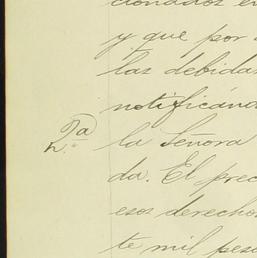 cionados en
y que por
las debidas
notificánd
2ª la Señora
da. El prec
esos derechos
te mil pes